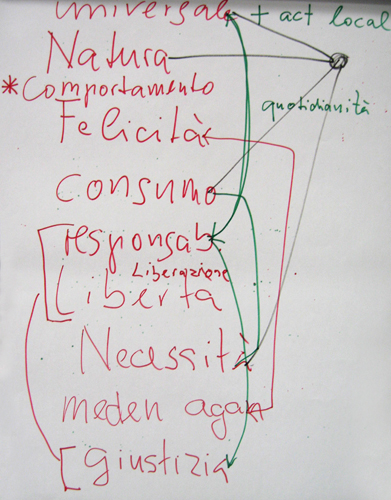 universale + act local
Natura
*Comportamento
quotidianità
Felicità
consumo
responsab.
Liberazione
Libertà
Necessità
meden agan
giustizia